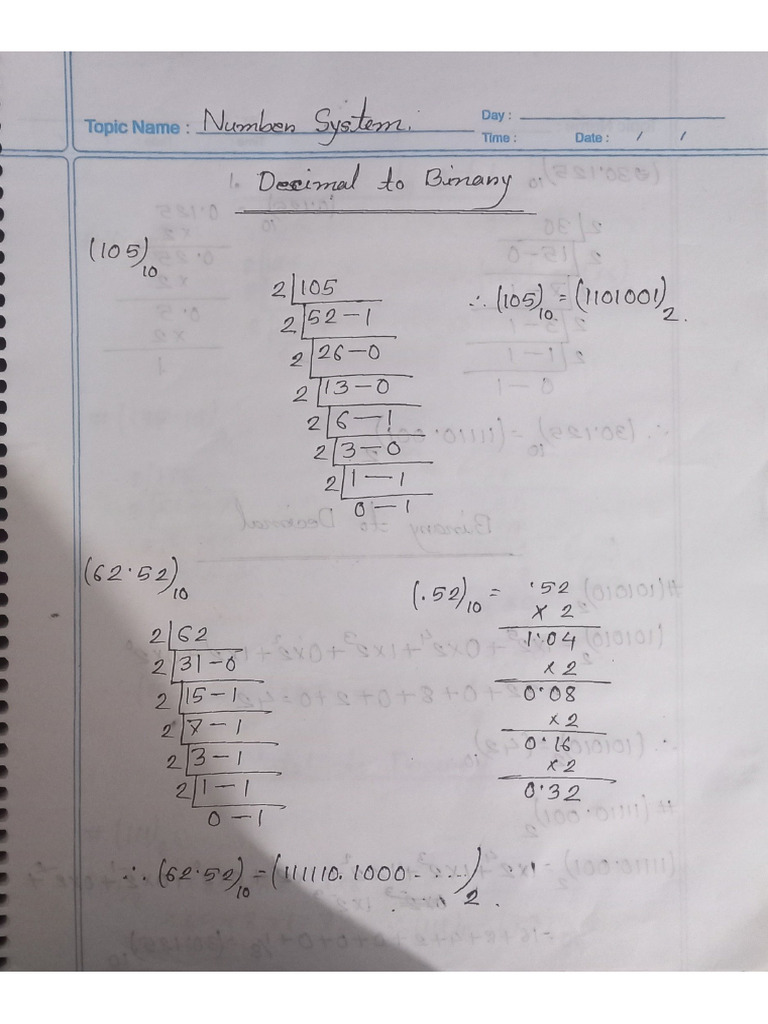 Topic Name : Number System.
Day :
Time : Date : / /
1. Decimal to Binary
(105)10
2 105
2 52 – 1
2 26 – 0
2 13 – 0
2 6 – 1
2 3 – 0
2 1 – 1
0 – 1
∴ (105)10 = (1101001)2.
(62.52)10
2 62
2 31 – 0
2 15 – 1
2 7 – 1
2 3 – 1
2 1 – 1
0 – 1
(.52)10 = .52
x 2
1.04
x 2
0.08
x 2
0.16
x 2
0.32
∴ (62.52)10 = (111110.1000 - ....)2.